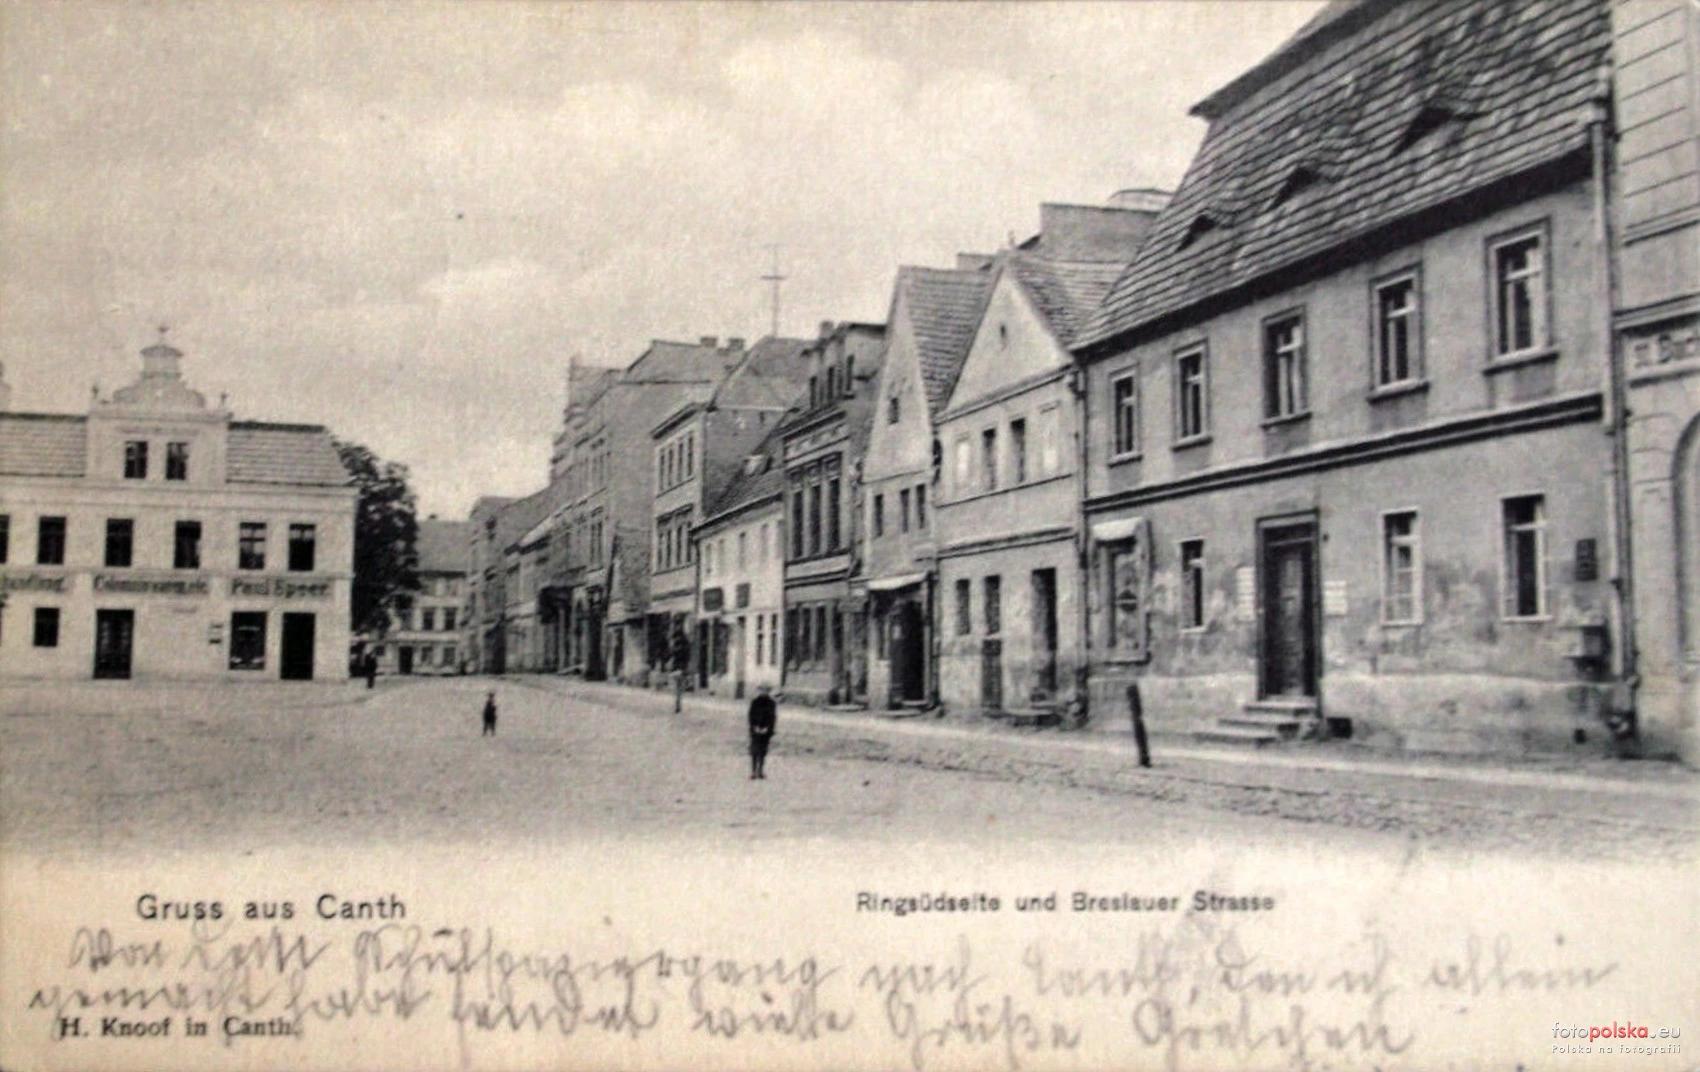 handlung.
Colonialwaren etc.
Paul Speer.
Gruss aus Canth
Ringsüdseite und Breslauer Strasse
Von Schulspaziergang nach Canth, den ich allein
gemacht habe sendet viele Grüße Gretchen
H. Knoof in Canth.
fotopolska.eu
Polska na fotografii